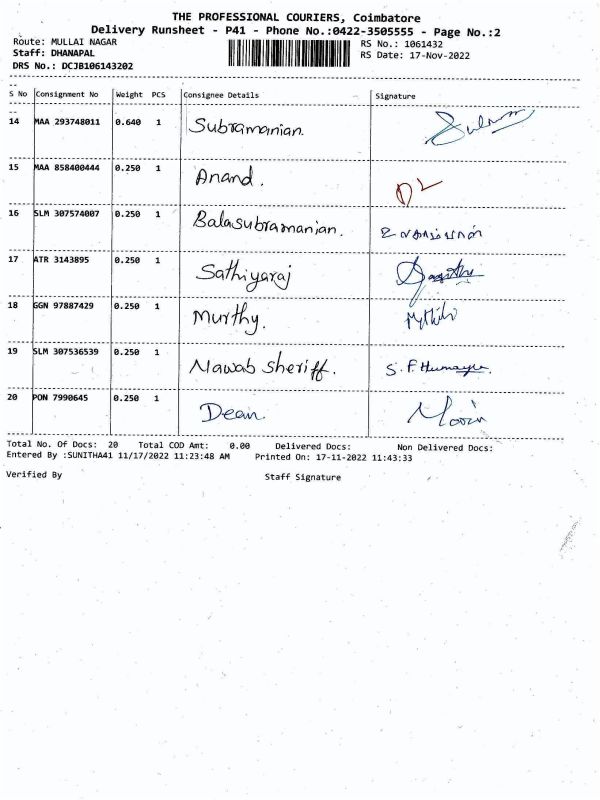 THE PROFESSIONAL COURIERS, Coimbatore
Delivery Runsheet - P41 - Phone No.:0422-3505555 - Page No.:2
Route: MULLAI NAGAR RS No.: 1061432
Staff: DHANAPAL RS Date: 17-Nov-2022
DRS No.: DCJB106143202
S No Consignment No Weight PCS Consignee Details Signature
14 MAA 293748011 0.640 1 Subramanian.
15 MAA 858400444 0.250 1 Anand.
16 SLM 307574007 0.250 1 Balasubramanian.
17 ATR 3143895 0.250 1 Sathiyaraj
18 GGN 97887429 0.250 1 Murthy.
19 SLM 307536539 0.250 1 Nawab Sheriff. S.F.Humayu
20 PON 7990645 0.250 1 Dean.
Total No. Of Docs: 20 Total COD Amt: 0.00 Delivered Docs: Non Delivered Docs:
Entered By :SUNITHA41 11/17/2022 11:23:48 AM Printed On: 17-11-2022 11:43:33
Verified By Staff Signature